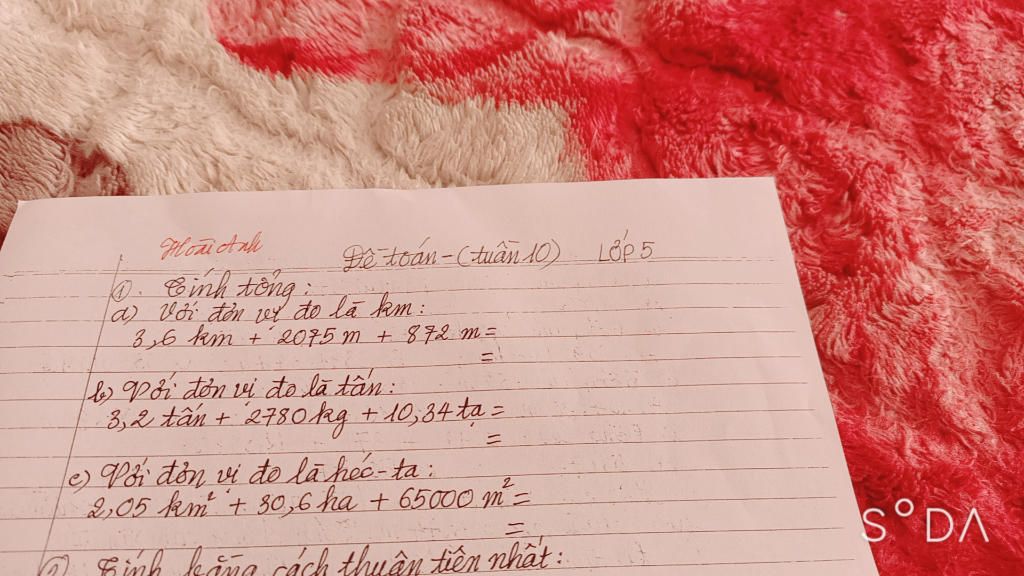 Hoài Anh
Đề toán - (tuần 10) LỚP 5
①. Tính tổng:
a) Với đơn vị đo là km:
3,6 km + 2075 m + 872 m =
=
b) Với đơn vị đo là tấn:
3,2 tấn + 2780 kg + 10,34 tạ =
=
c) Với đơn vị đo là héc-ta:
2,05 km² + 30,6 ha + 65000 m² =
=
② Tính bằng cách thuận tiện nhất:
SODA